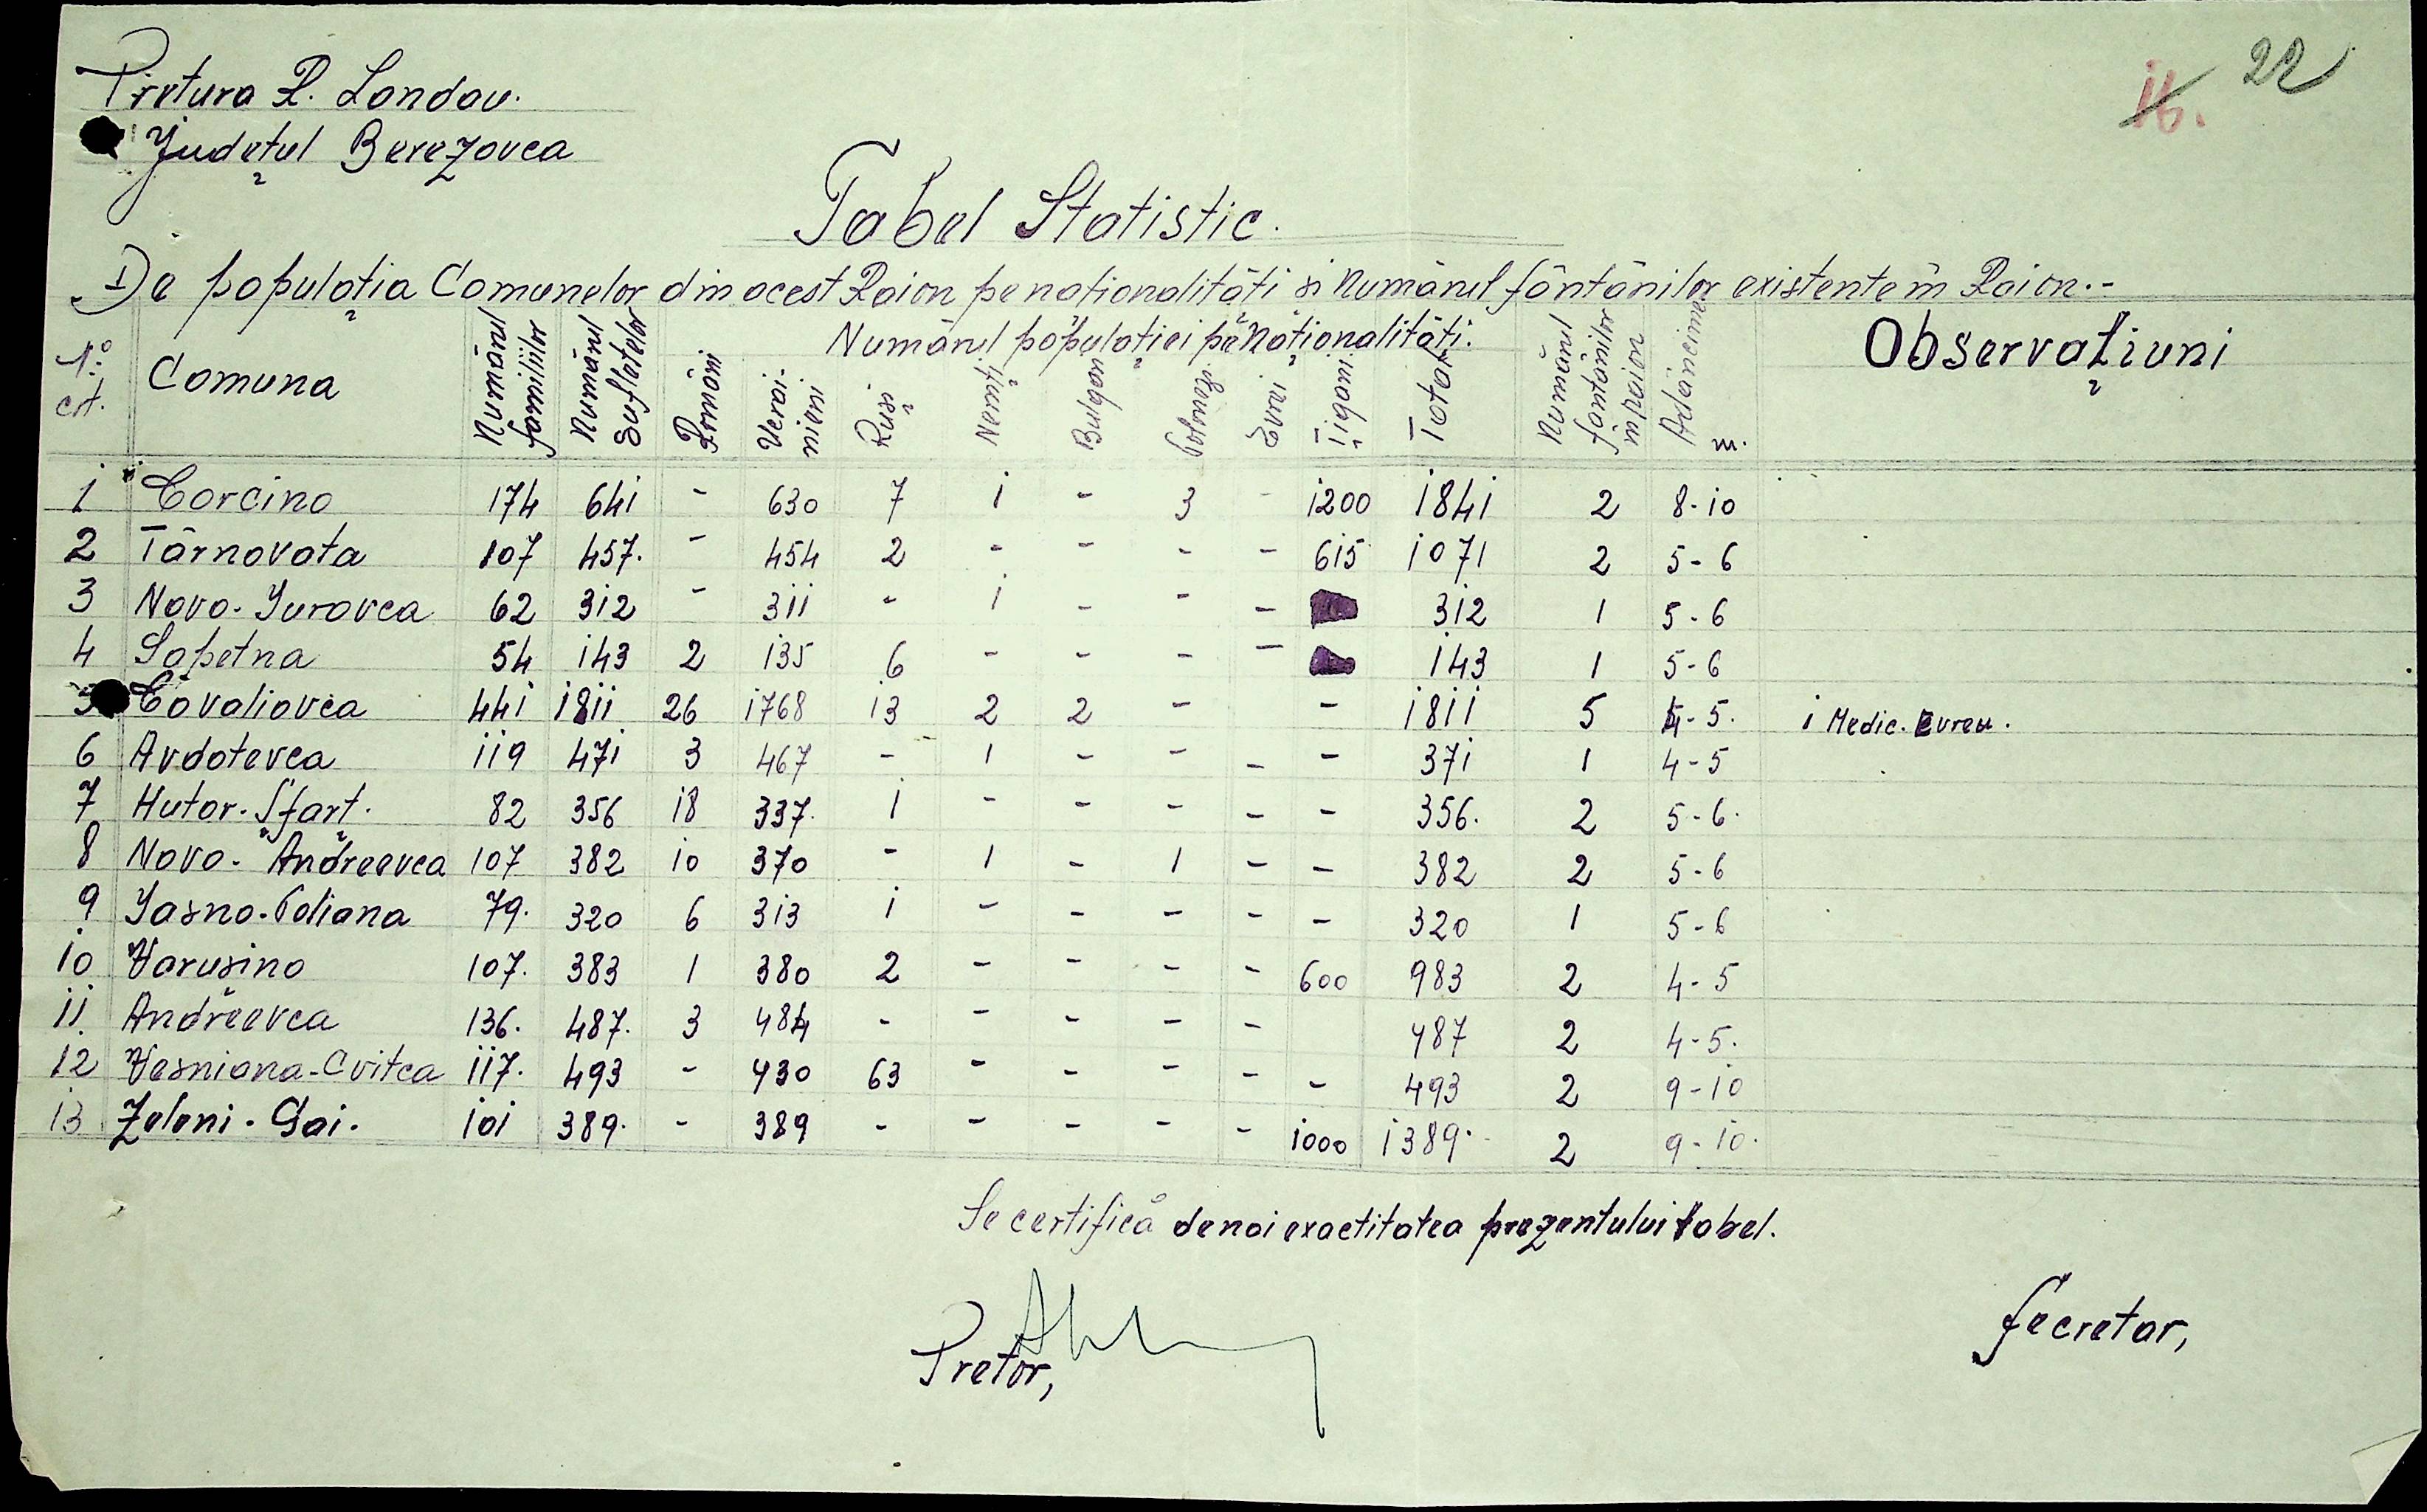 22
16.
Pretura R. Landau.
Județul Berezovca
Tabel Statistic.
De populația Comunelor din acest Raion pe naționalități si Numărul fântânilor existente în Raion.-
No crt. | Comuna | Numărul familiilor | Numărul Sufletelor | Numărul populației pe Naționalităti: Români | Ucrainieni | Ruși | Nemți | Bulgari | Polonezi | Evrei | Țigani | Total | Numărul fântânilor în Raion | Adâncimea m. | Observațiuni
1 Corcino 174 641 - 630 7 1 - 3 - 1200 1841 2 8-10
2 Târnovata 107 457. - 454 2 - - - - 615 1071 2 5-6
3 Novo-Yurovca 62 312 - 311 - 1 - - - 312 1 5-6
4 Sapetna 54 143 2 135 6 - - - - 143 1 5-6
5 Covaliovca 441 1811 26 1768 13 2 2 - - 1811 5 4-5. 1 Medic. Evreu.
6 Avdotevca 119 471 3 467 - 1 - - - - 371 1 4-5
7 Hutor-Șfart. 82 356 18 337. 1 - - - - - 356. 2 5-6.
8 Novo-Andreevca 107 382 10 370 - 1 - 1 - - 382 2 5-6
9 Yasno-Poliana 79. 320 6 313 1 - - - - - 320 1 5-6
10 Varușino 107. 383 1 380 2 - - - - 600 983 2 4-5
11. Andreevca 136. 487. 3 484 - - - - - 487 2 4-5.
12 Vesniana-Cvitca 117. 493 - 430 63 - - - - - 493 2 9-10
13 Zeleni-Gai. 101 389. - 389 - - - - - 1000 1389. 2 9-10.
Se certifică de noi exactitatea prezentului tabel.
Pretor,
Secretar,